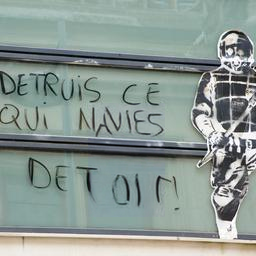 DETRUIS CE
QUI NAVIES
DETOIT!